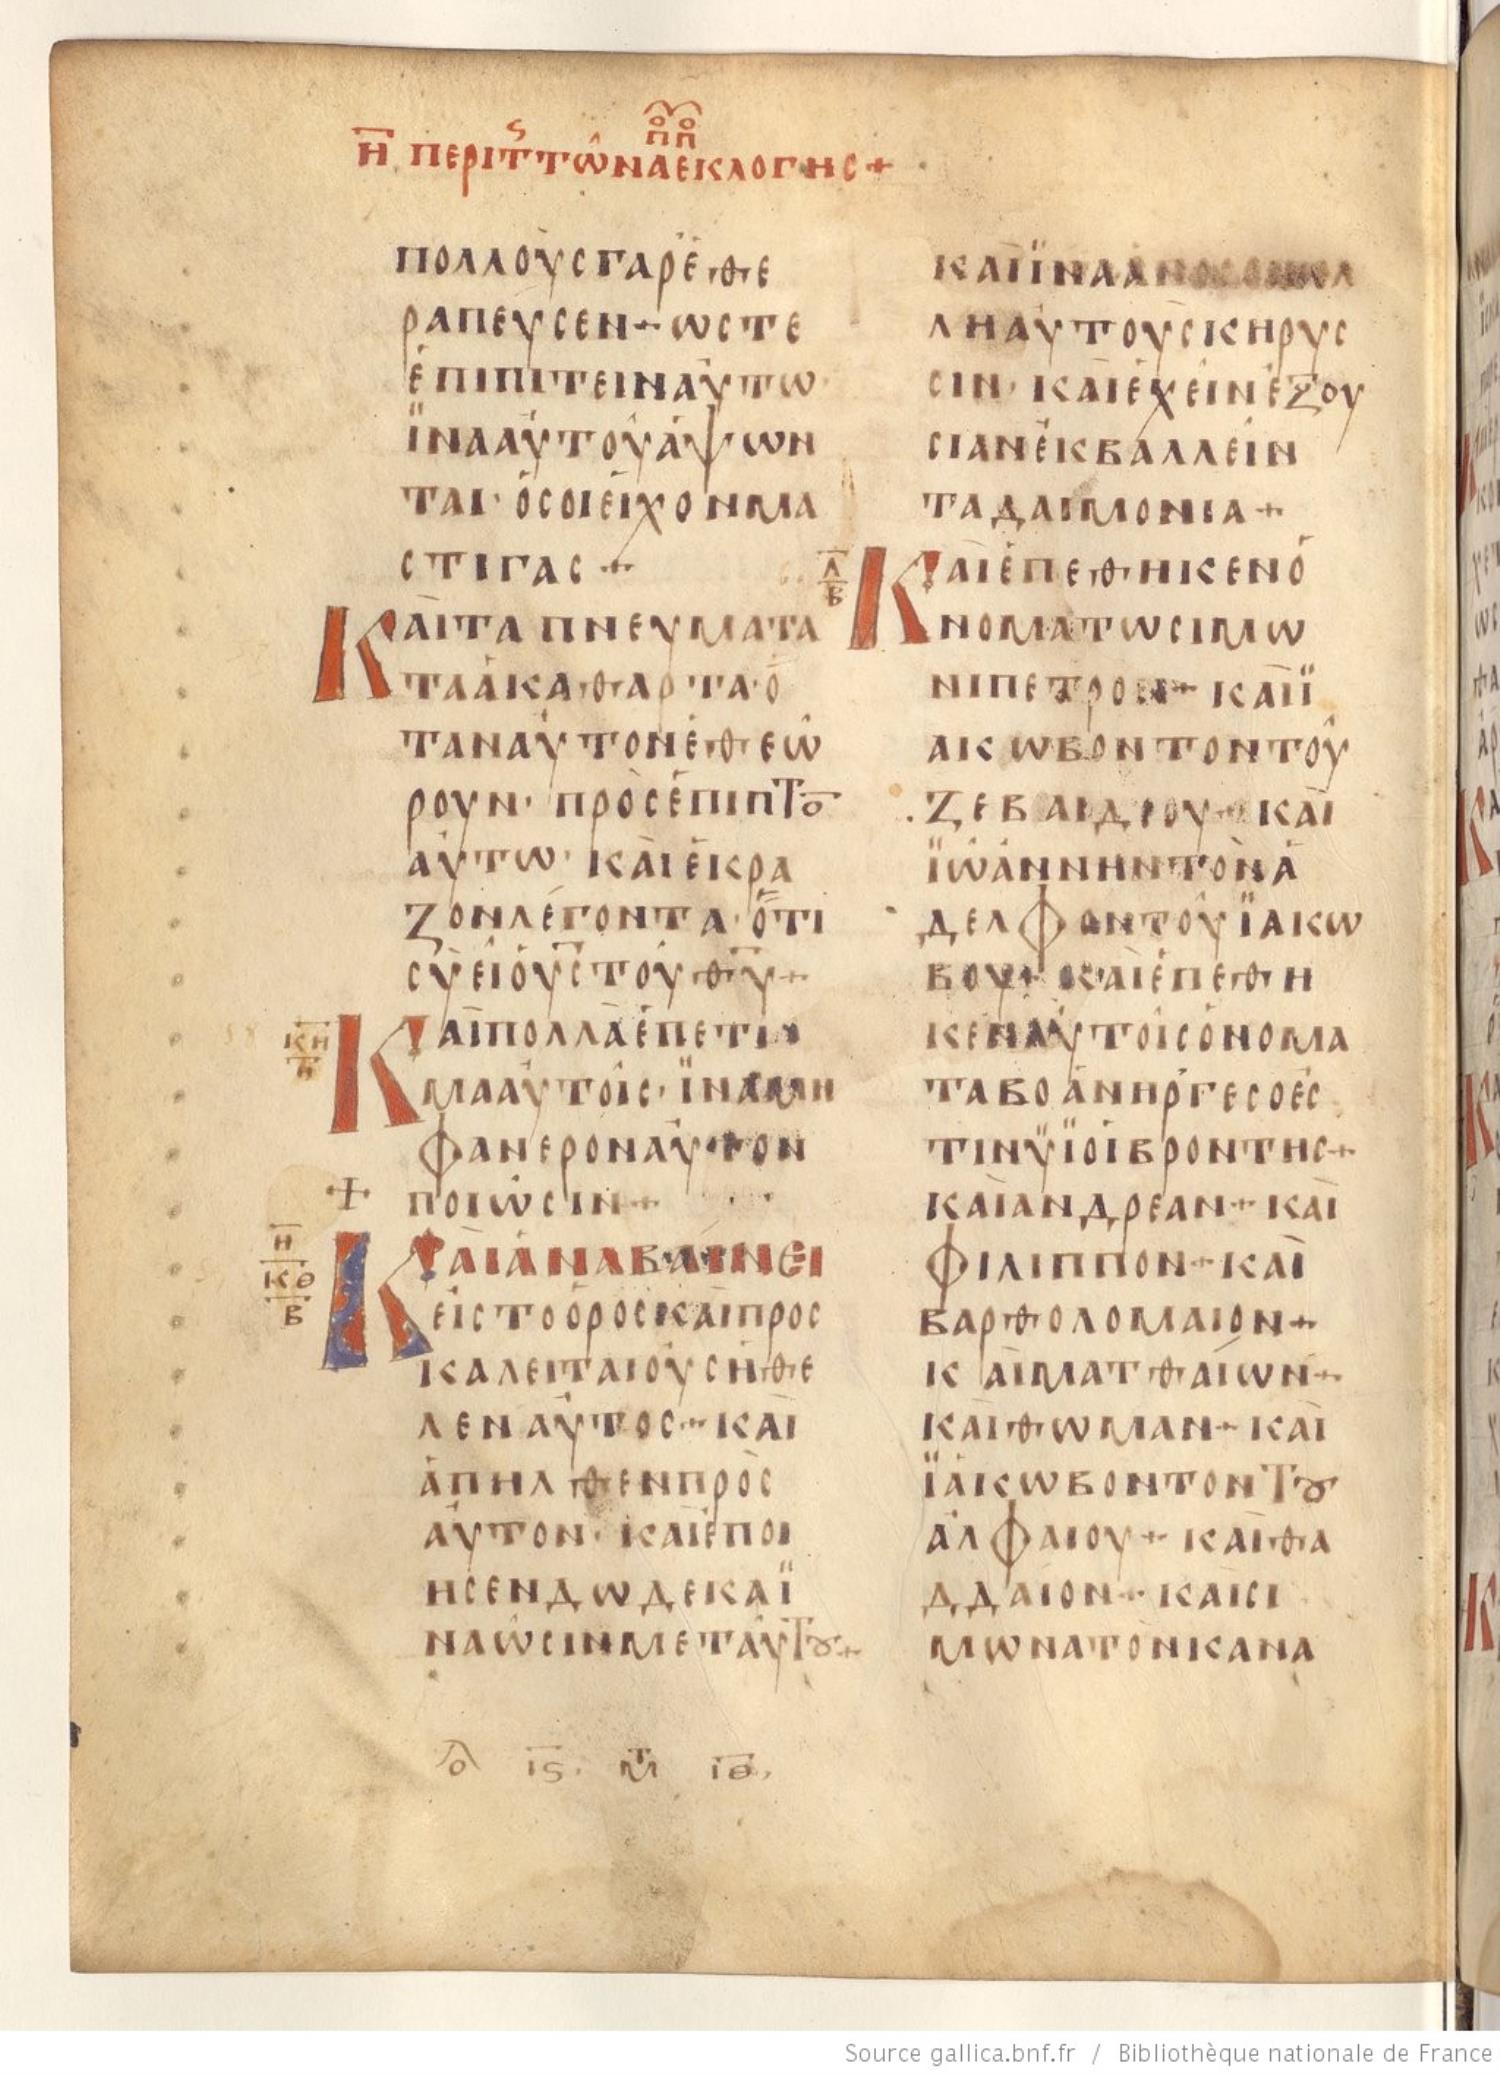 Η ΠΕΡΙ Τ͞ΤΩΝ ΑΠΟΠΟ ΕΚΛΟΓΗΣ+
ΠΟΛΛΟΥΣ ΓΑΡ ΕΘΕ
ΡΑΠΕΥΣΕΝ+ ΩΣΤΕ
ΕΠΙΠΙΤΕΙΝ ΑΥΤΩ·
ΪΝΑ ΑΥΤΟΥ ΑΨΩΝ
ΤΑΙ· ΟΣΟΙ ΕΙΧΟΝ ΜΑ
ΣΤΙΓΑΣ+
ΚΑΙ ΤΑ ΠΝΕΥΜΑΤΑ
ΤΑ ΑΚΑΘΑΡΤΑ· Ο
ΤΑΝ ΑΥΤΟΝ ΕΘΕΩ
ΡΟΥΝ· ΠΡΟΣΕΠΙΠΤΟ̅
ΑΥΤΩ· ΚΑΙ ΕΚΡΑ
ΖΟΝ ΛΕΓΟΝΤΑ· ΟΤΙ
ΣΥ ΕΙ Ο Υ͞Σ ΤΟΥ Θ͞Υ+
Κ͞Η
Η
ΚΑΙ ΠΟΛΛΑ ΕΠΕΤΙ
ΜΑ ΑΥΤΟΙΣ· ΪΝΑ ΜΗ
ΦΑΝΕΡΟΝ ΑΥΤΟΝ
ΠΟΙΩΣΙΝ+
+
Η
ΚΘ
Β
ΚΑΙ ΑΝΑΒΑΙΝΕΙ
ΕΙΣ ΤΟ ΟΡΟΣ ΚΑΙ ΠΡΟΣ
ΚΑΛΕΙΤΑΙ ΟΥΣ ΗΘΕ
ΛΕΝ ΑΥΤΟΣ+ ΚΑΙ
ΑΠΗΛΘΕΝ ΠΡΟΣ
ΑΥΤΟΝ· ΚΑΙ ΕΠΟΙ
ΗΣΕΝ ΔΩΔΕΚΑ Ϊ
ΝΑ ΩΣΙΝ ΜΕΤ ΑΥΤȣ+
ΚΑΙ ΪΝΑ
ΛΗ ΑΥΤΟΥΣ ΚΗΡΥΣ
ΣΙΝ· ΚΑΙ ΕΧΕΙΝ ΕΞΟΥ
ΣΙΑΝ ΕΚΒΑΛΛΕΙΝ
ΤΑ ΔΑΙΜΟΝΙΑ+
Λ
Β
ΚΑΙ ΕΠΕΘΗΚΕΝ Ο
ΝΟΜΑ ΤΩ ΣΙΜΩ
ΝΙ ΠΕΤΡΟΝ+ ΚΑΙ Ϊ
ΑΚΩΒΟΝ ΤΟΝ ΤΟΥ
ΖΕΒΑΙΔΕΟΥ+ ΚΑΙ
ΪΩΑΝΝΗΝ ΤΟΝ Α
ΔΕΛΦΟΝ ΤΟΥ ΪΑΚΩ
ΒΟΥ+ ΚΑΙ ΕΠΕΘΗ
ΚΕΝ ΑΥΤΟΙΣ ΟΝΟΜΑ
ΤΑ ΒΟΑΝΗΡΓΕΣ Ο ΕΣ
ΤΙΝ ΫΪΟΙ ΒΡΟΝΤΗΣ+
ΚΑΙ ΑΝΔΡΕΑΝ+ ΚΑΙ
ΦΙΛΙΠΠΟΝ+ ΚΑΙ
ΒΑΡΘΟΛΟΜΑΙΟΝ+
ΚΑΙ ΜΑΤΘΑΙΩΝ+
ΚΑΙ ΘΩΜΑΝ+ ΚΑΙ
ΪΑΚΩΒΟΝ ΤΟΝ Τȣ
ΑΛΦΑΙΟΥ+ ΚΑΙ ΘΑ
ΔΔΑΙΟΝ+ ΚΑΙ ΣΙ
ΜΩΝΑ ΤΟΝ ΚΑΝΑ
ΙϚ· Μ ΙΘ,
Source gallica.bnf.fr / Bibliothèque nationale de France